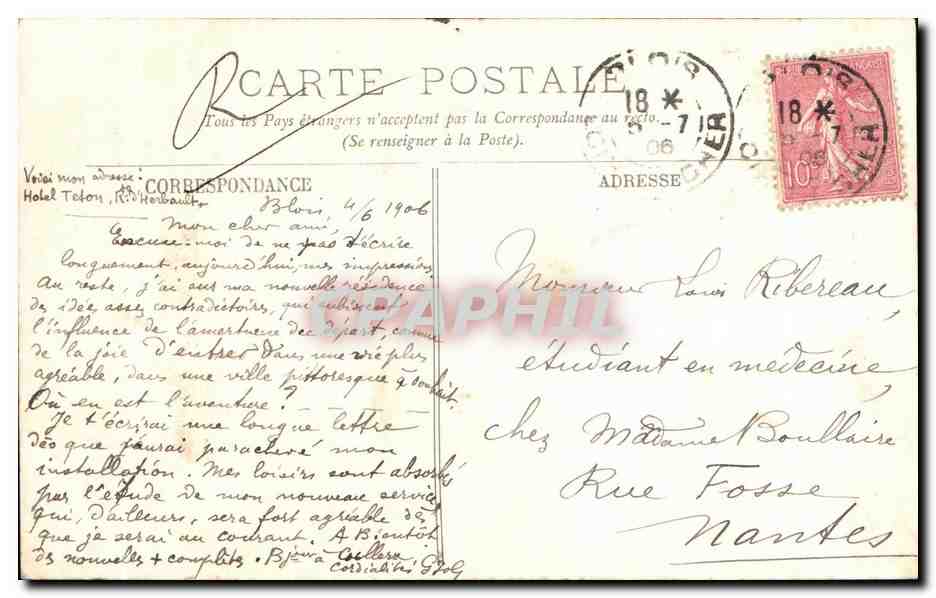 R
CARTE POSTALE
Tous les Pays étrangers n'acceptent pas la Correspondance au recto.
(Se renseigner à la Poste).
BLOIS
18 *
5 -7
06
CHER
18 *
-7
CHER
10
Voici mon adresse:
Hotel Teton, R. d'Herbault
CORRESPONDANCE
Blois, 4/6 1906
Mon cher ami,
Excuse-moi de ne pas t'écrire
longuement, aujourd'hui, mes impressions
Au reste, j'ai sur ma nouvelle résidence
des idées asses contradictoires, qui subissent
l'influence de l'amertume du départ, comme
de la joie d'entrer dans une vie plus
agréable, dans une ville pittoresque à souhait.
Où en est l'aventure?
Je t'écrirai une longue lettre
dès que j'aurai parachevé mon
installation. Mes loisirs sont absorbés
par l'étude de mon nouveau service
qui, d'ailleurs, sera fort agréable dès
que je serai au courant. A Bientôt
des nouvelles + complètes. Bjour à
Cordialités
ADRESSE
Monsieur Louis Ribereau,
étudiant en médecine,
chez Madame Boullaire
Rue Fosse
Nantes
CPAPHIL